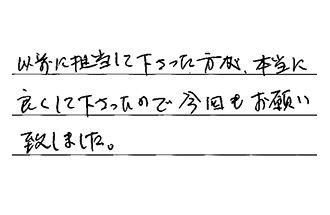 以前に担当して下さった方が、本当に
良くして下さったので今回もお願い
致しました。